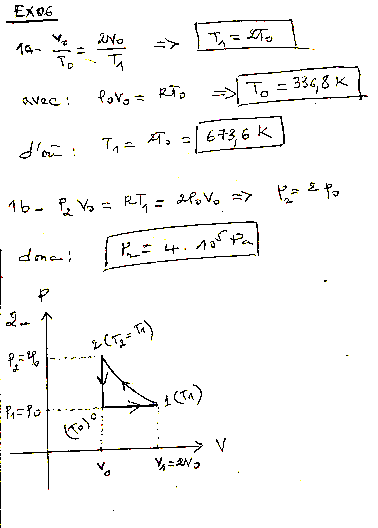 EX06
1a- V₀/T₀ = 2V₀/T₁ => T₁ = 2T₀
avec : P₀V₀ = RT₀ => T₀ = 336,8 K
d'où : T₁ = 2T₀ = 673,6 K
1b- P₂V₀ = RT₁ = 2P₀V₀ => P₂ = 2P₀
donc : P₂ = 4.10⁵ Pa
P
2-
2 (T₂ = T₁)
P₂ = 2P₀
1 (T₁)
P₁ = P₀
(T₀) 0
V
V₀ V₁ = 2V₀